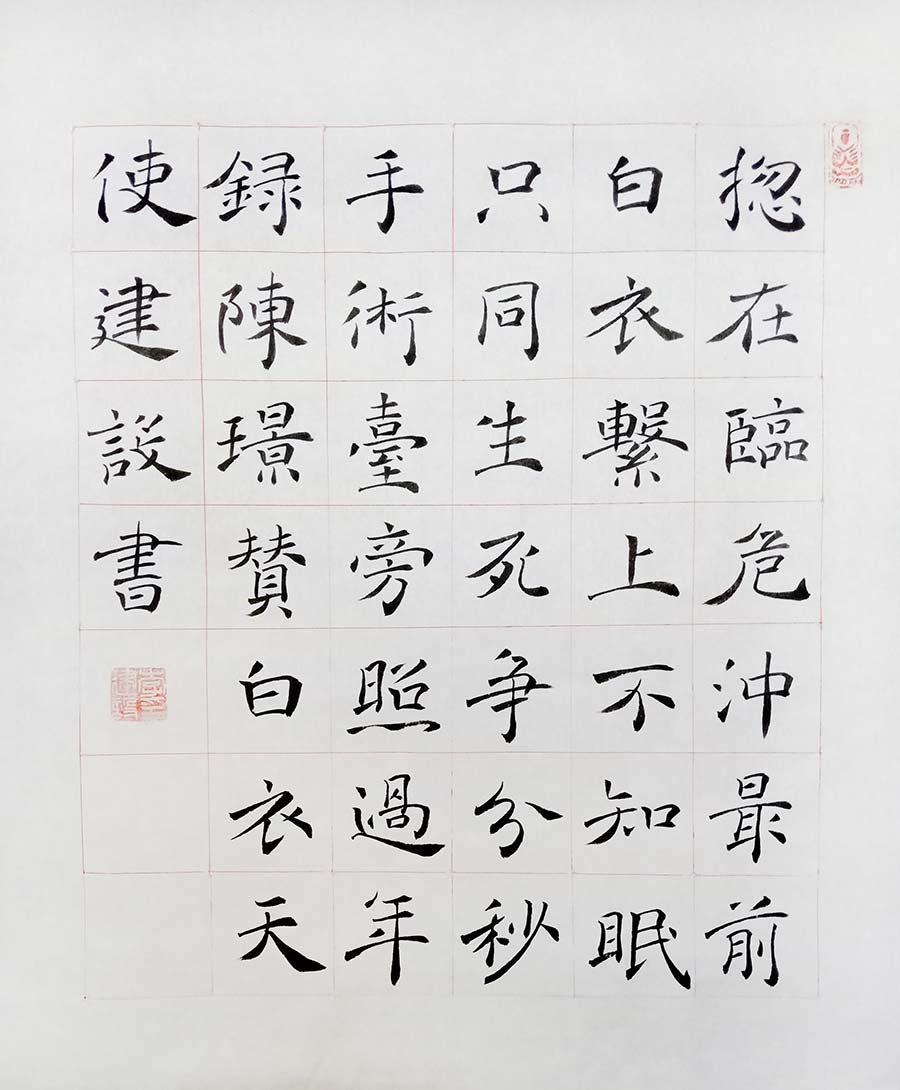 揔在臨危沖最前
白衣繫上不知眠
只同生死爭分秒
手術臺旁照過年
録陳璟賛白衣天
使建設書